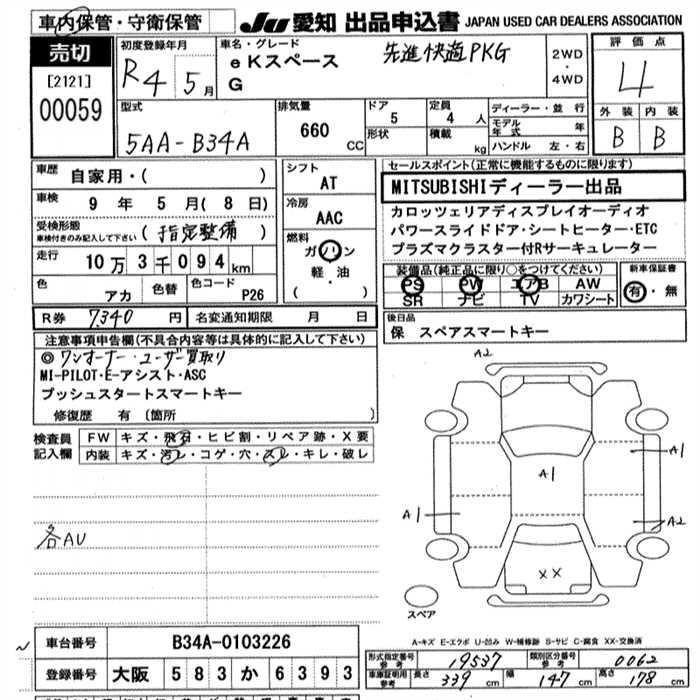 車内保管・守衛保管
JU 愛知 出品申込書 JAPAN USED CAR DEALERS ASSOCIATION
売切
[2121]
00059
初度登録年月
R4 5月
車名・グレード
eKスペース
G
先進快適PKG
2WD
・
4WD
評価点
4
外装 内装
B B
型式
5AA-B34A
排気量
660 CC
ドア
5
形状
定員
4 人
積載
kg
ディーラー・並行
モデル年式 年
ハンドル 左・右
車歴
自家用・( )
車検
9 年 5 月 ( 8 日)
受検形態
車検付きのみ記入して下さい
(指定整備)
走行
10万3千094km
色
アカ
色替
色コード
P26
シフト
AT
冷房
AAC
燃料
ガソリン
軽・油
( )
R券 7340 円
名変通知期限 月 日
セールスポイント(正常に機能するものに限ります)
MITSUBISHIディーラー出品
カロッツェリアディスプレイオーディオ
パワースライドドア・シートヒーター・ETC
プラズマクラスター付Rサーキュレーター
装備品(純正品に限り○をつけてください)
PS PW エアB AW
SR ナビ TV カワシート
新車保証書
有・無
後日品
保 スペアスマートキー
注意事項申告欄(不具合内容等は具体的に記入して下さい)
◎ワンオーナー・ユーザー買取り
MI-PILOT・E-アシスト・ASC
プッシュスタートスマートキー
修復歴 有 (箇所 )
検査員
記入欄
FW キズ・飛石・ヒビ割・リペア跡・X要
内装 キズ・汚レ・コゲ・穴・スレ・キレ・破レ
各AU
A2
A1
A1
A1
A2
XX
スペア
A-キズ E-エクボ U-凹み W-補修跡 S-サビ C-腐食 XX-交換済
車台番号 B34A-0103226
登録番号 大阪 583 か 6393
形式指定番号
参考
19537
類別区分番号
参考
0062
車庫証明用
参考
長さ 339 cm 幅 147 cm 高さ 178 cm